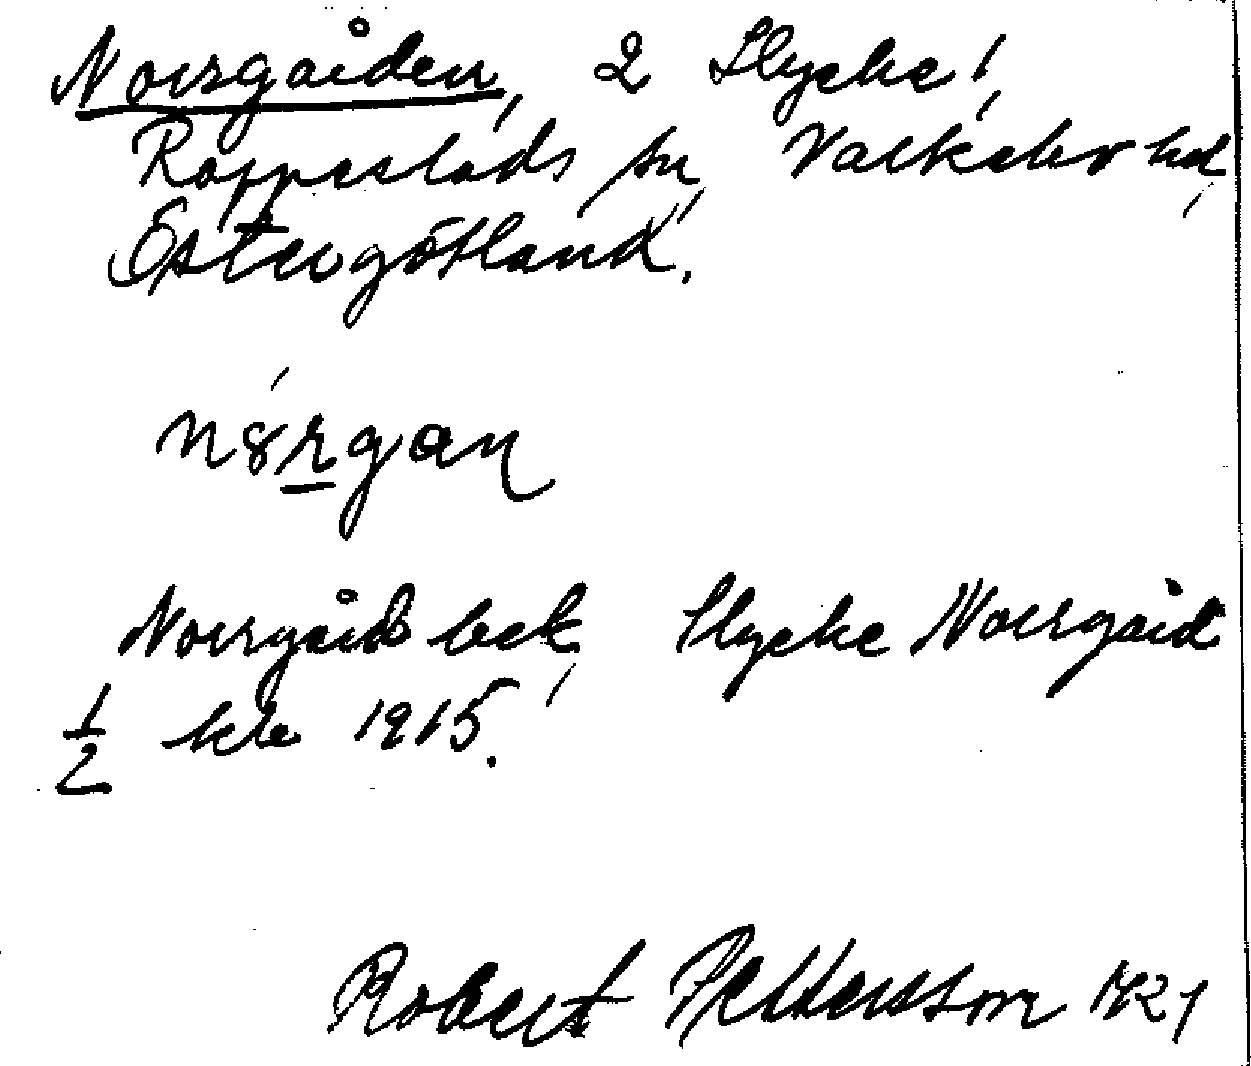 Norrgården, 2 Slycke,
Rappestads sn, Valkebo hd,
Östergötland.
nȣrgan
Norrgård bet, Slycke Norrgård
1/2 kr 1915.
Robert Pettersson 1921